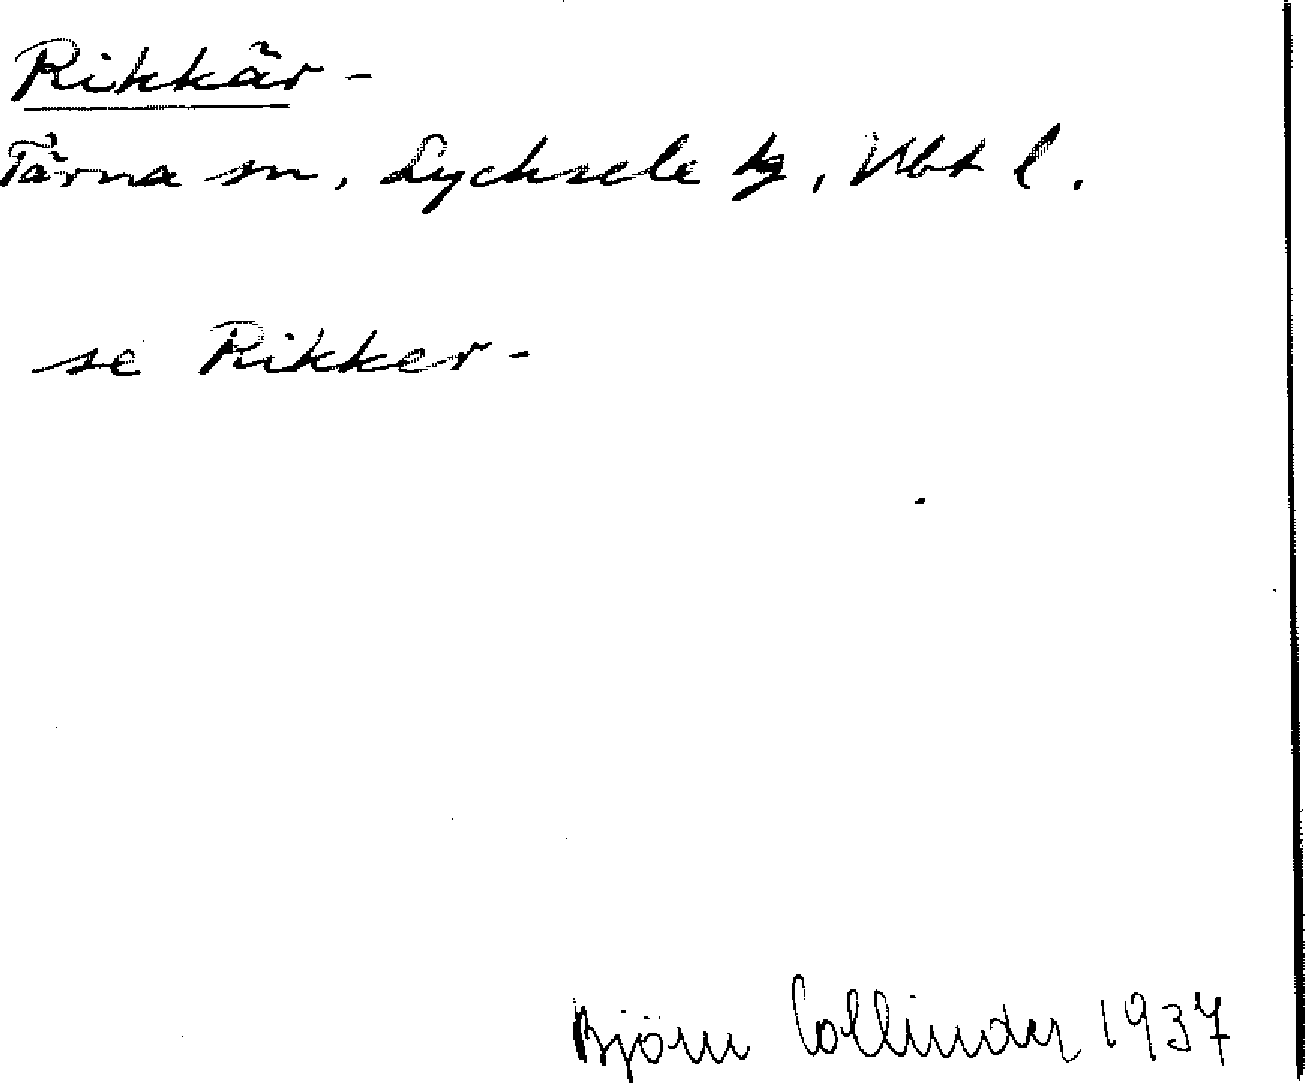 Rikkär-
Tärna sn, Lycksele tg, Vbt l.
se Rikker-
Björn Collinder 1937